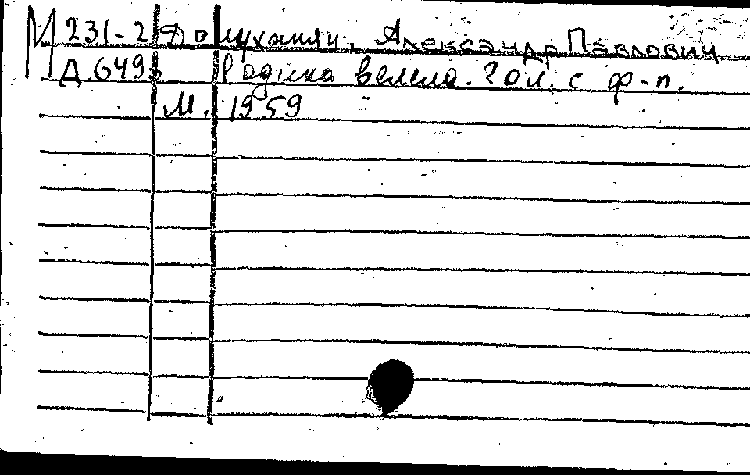 М 231-2 Долуханян, Александр Павлович
Д 649 Родина велела. Гол. с ф-п.
М. 1959